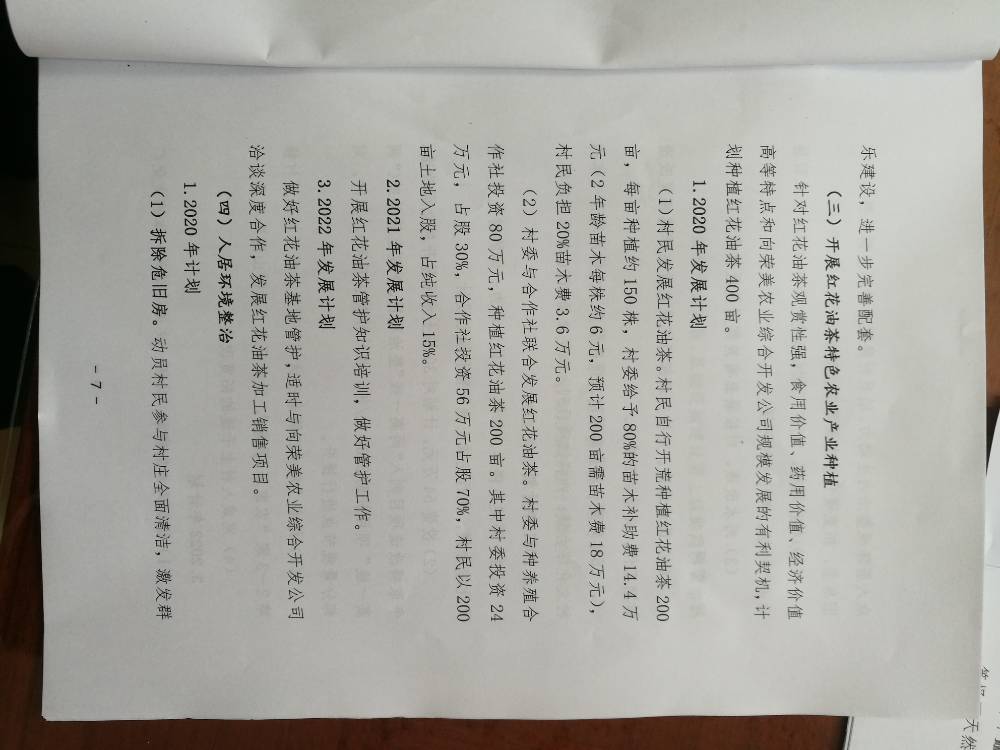 乐建设，进一步完善配套。
（三）开展红花油茶特色农业产业种植
针对红花油茶观赏性强，食用价值、药用价值、经济价值
高等特点和向荣美农业综合开发公司规模发展的有利契机，计
划种植红花油茶 400 亩。
1. 2020 年发展计划
（1）村民发展红花油茶。村民自行开荒种植红花油茶 200
亩，每亩种植约 150 株，村委给予 80%的苗木补助费 14.4 万
元（2 年龄苗木每株约 6 元，预计 200 亩需苗木费 18 万元），
村民负担 20%苗木费 3.6 万元。
（2）村委与合作社联合发展红花油茶。村委与种养殖合
作社投资 80 万元，种植红花油茶 200 亩。其中村委投资 24
万元，占股 30%，合作社投资 56 万元占股 70%，村民以 200
亩土地入股，占纯收入 15%。
2. 2021 年发展计划
开展红花油茶管护知识培训，做好管护工作。
3. 2022 年发展计划
做好红花油茶基地管护，适时与向荣美农业综合开发公司
洽谈深度合作，发展红花油茶加工销售项目。
（四）人居环境整治
1. 2020 年计划
（1）拆除危旧房。动员村民参与村庄全面清洁，激发群
- 7 -
天然